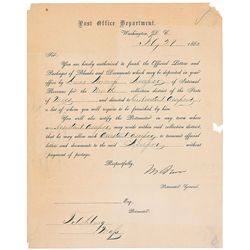 Post Office Department,
Washington, D. C.
186
Sir:
You are hereby authorized to frank the Official Letters and
Packages of Blanks and Documents which may be deposited in your
office by Assessor of Internal
Revenue for the collection district of the State
of and directed to Assistant Assessors
a list of whom will be furnished by him.
You will also notify the Postmaster in any town where
an Assistant Assessor may reside within said collection district
that he may allow such Assistant Assessor to transmit official
letters and documents to the said Assessor without
prepayment of postage.
Respectfully,
Postmaster General.
Esq.
Postmaster,
Fitchburg
Mass